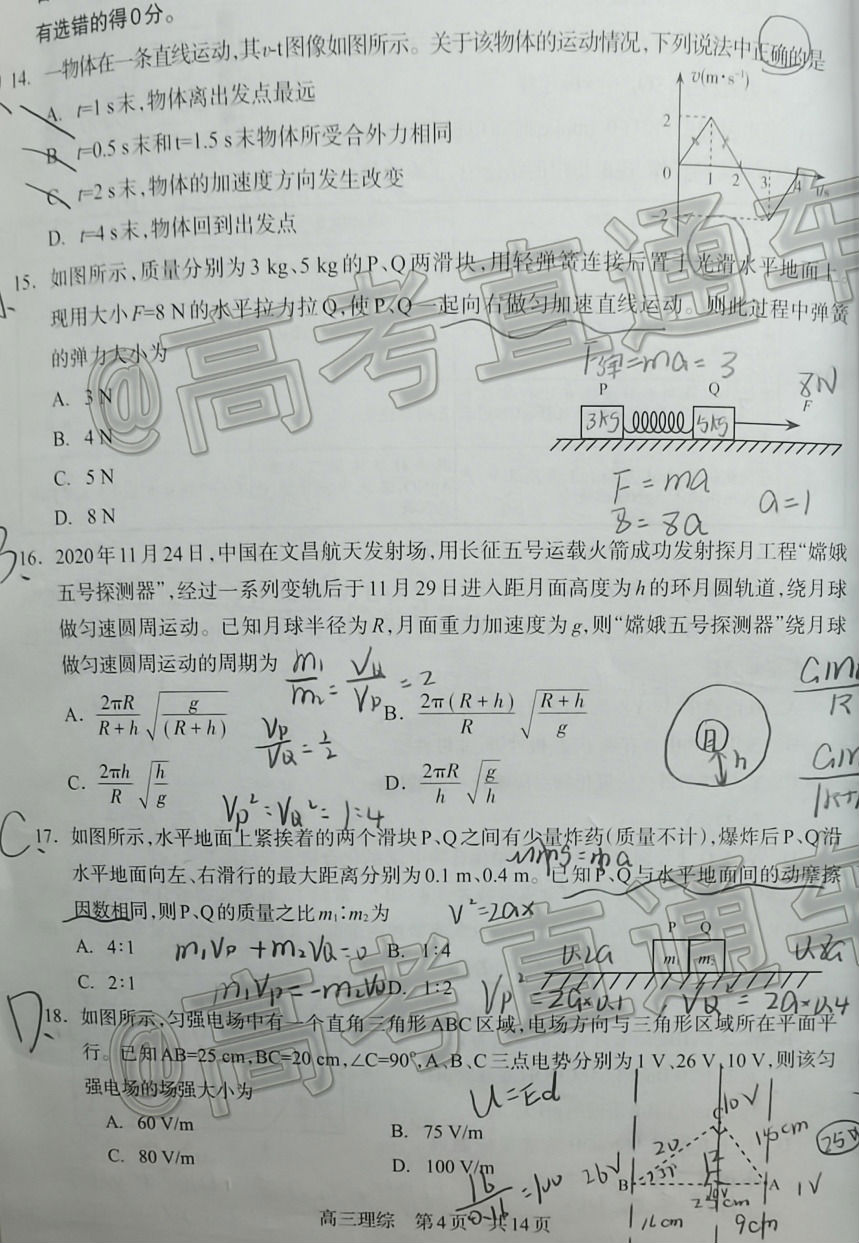 有选错的得0分。
14. 一物体在一条直线运动,其v-t图像如图所示。关于该物体的运动情况,下列说法中正确的是
A. t=1 s末,物体离出发点最远
B. t=0.5 s末和t=1.5 s末物体所受合外力相同
C. t=2 s末,物体的加速度方向发生改变
D. t=4 s末,物体回到出发点
v(m·s⁻¹)
2
0 1 2 3 4 t/s
-2
15. 如图所示,质量分别为3 kg、5 kg的P、Q两滑块,用轻弹簧连接后置于光滑水平地面上,
现用大小F=8 N的水平拉力拉Q,使P、Q一起向右做匀加速直线运动。则此过程中弹簧
的弹力大小为
A. 3 N
B. 4 N
C. 5 N
D. 8 N
F弹=ma=3
P Q F 8N
3kg 5kg
F=ma
8=8a a=1
B
16. 2020年11月24日,中国在文昌航天发射场,用长征五号运载火箭成功发射探月工程“嫦娥
五号探测器”,经过一系列变轨后于11月29日进入距月面高度为h的环月圆轨道,绕月球
做匀速圆周运动。已知月球半径为R,月面重力加速度为g,则“嫦娥五号探测器”绕月球
做匀速圆周运动的周期为
A. 2πR/(R+h) √(g/(R+h)) B. 2π(R+h)/R √((R+h)/g)
C. 2πh/R √(h/g) D. 2πR/h √(g/h)
m₁/m₂=VQ/VP=2
VP/VQ=1/2
月 h
VP²:VQ²=1:4
C
17. 如图所示,水平地面上紧挨着的两个滑块P、Q之间有少量炸药(质量不计),爆炸后P、Q沿
水平地面向左、右滑行的最大距离分别为0.1 m、0.4 m。已知P、Q与水平地面间的动摩擦
因数相同,则P、Q的质量之比m₁∶m₂为
V²=2ax
A. 4∶1 B. 1∶4
C. 2∶1 D. 1∶2
m₁VP+m₂VQ=0
m₁VP=-m₂VQ
P Q
VP²=2a×0.1, VQ²=2a×0.4
D
18. 如图所示,匀强电场中有一个直角三角形ABC区域,电场方向与三角形区域所在平面平
行。已知AB=25 cm,BC=20 cm,∠C=90°,A、B、C三点电势分别为1 V、26 V、10 V,则该匀
强电场的场强大小为
A. 60 V/m B. 75 V/m
C. 80 V/m D. 100 V/m
U=Ed
10V
C
20
26V B A 1V
25cm
16cm 9cm
高三理综 第4页 共14页
@高考直通车
@高考直通车